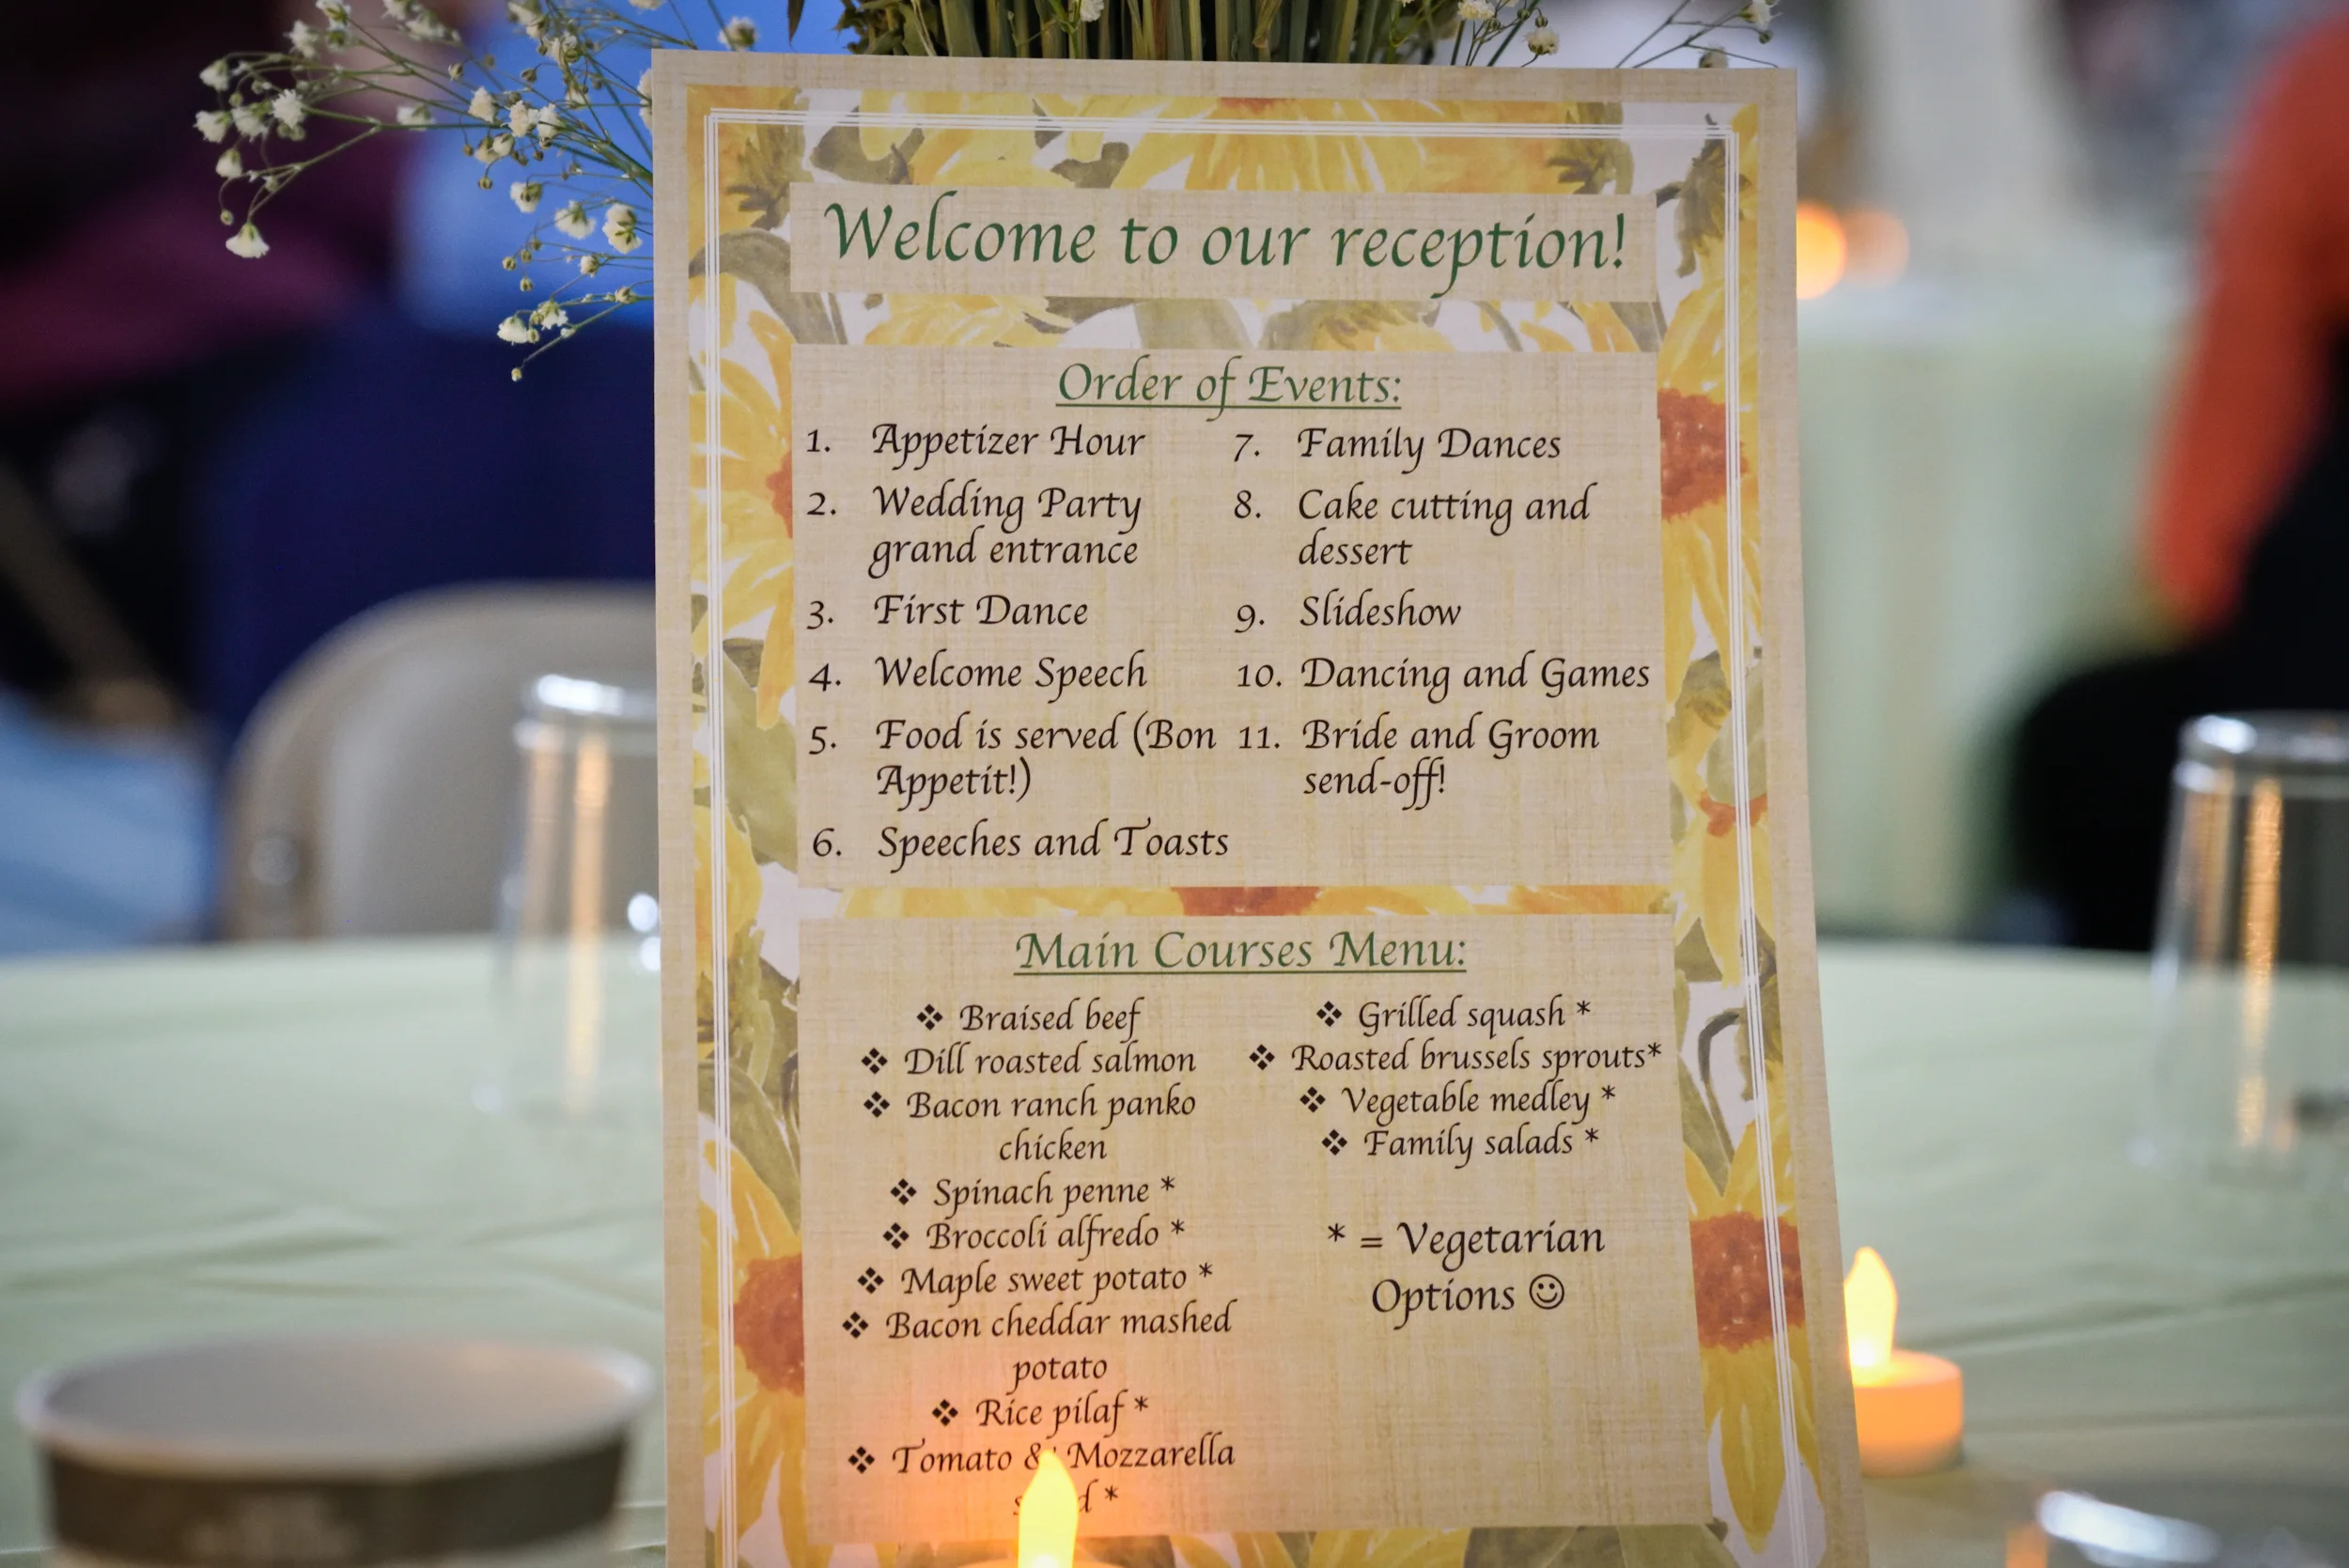 Welcome to our reception!
Order of Events:
1. Appetizer Hour
2. Wedding Party
grand entrance
3. First Dance
4. Welcome Speech
5. Food is served (Bon
Appetit!)
6. Speeches and Toasts
7. Family Dances
8. Cake cutting and
dessert
9. Slideshow
10. Dancing and Games
11. Bride and Groom
send-off!
Main Courses Menu:
❖ Braised beef
❖ Dill roasted salmon
❖ Bacon ranch panko
chicken
❖ Spinach penne *
❖ Broccoli alfredo *
❖ Maple sweet potato *
❖ Bacon cheddar mashed
potato
❖ Rice pilaf *
❖ Tomato & Mozzarella
*
❖ Grilled squash *
❖ Roasted brussels sprouts*
❖ Vegetable medley *
❖ Family salads *
* = Vegetarian
Options ☺